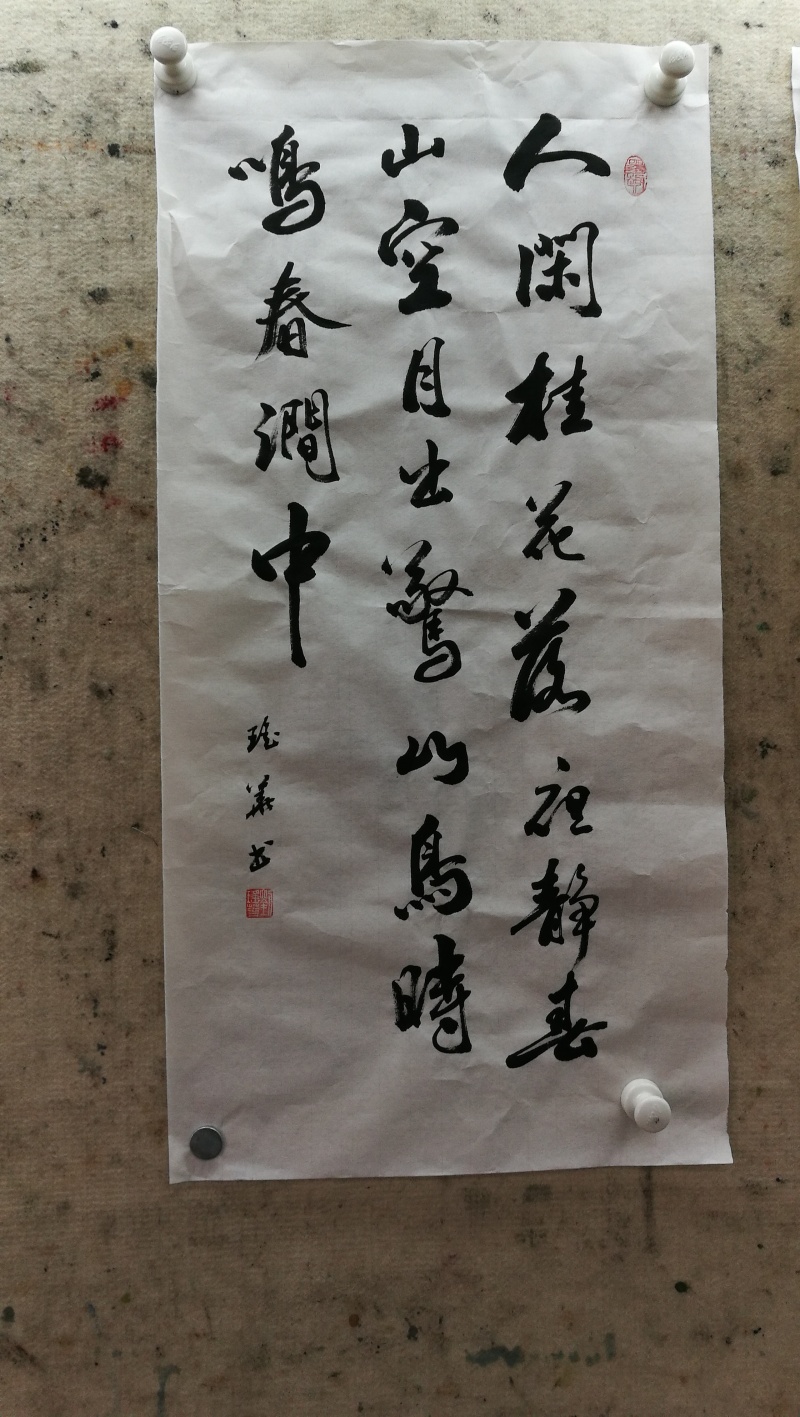 人閑桂花落夜静春
山空月出驚山鳥時
鳴春澗中
華书